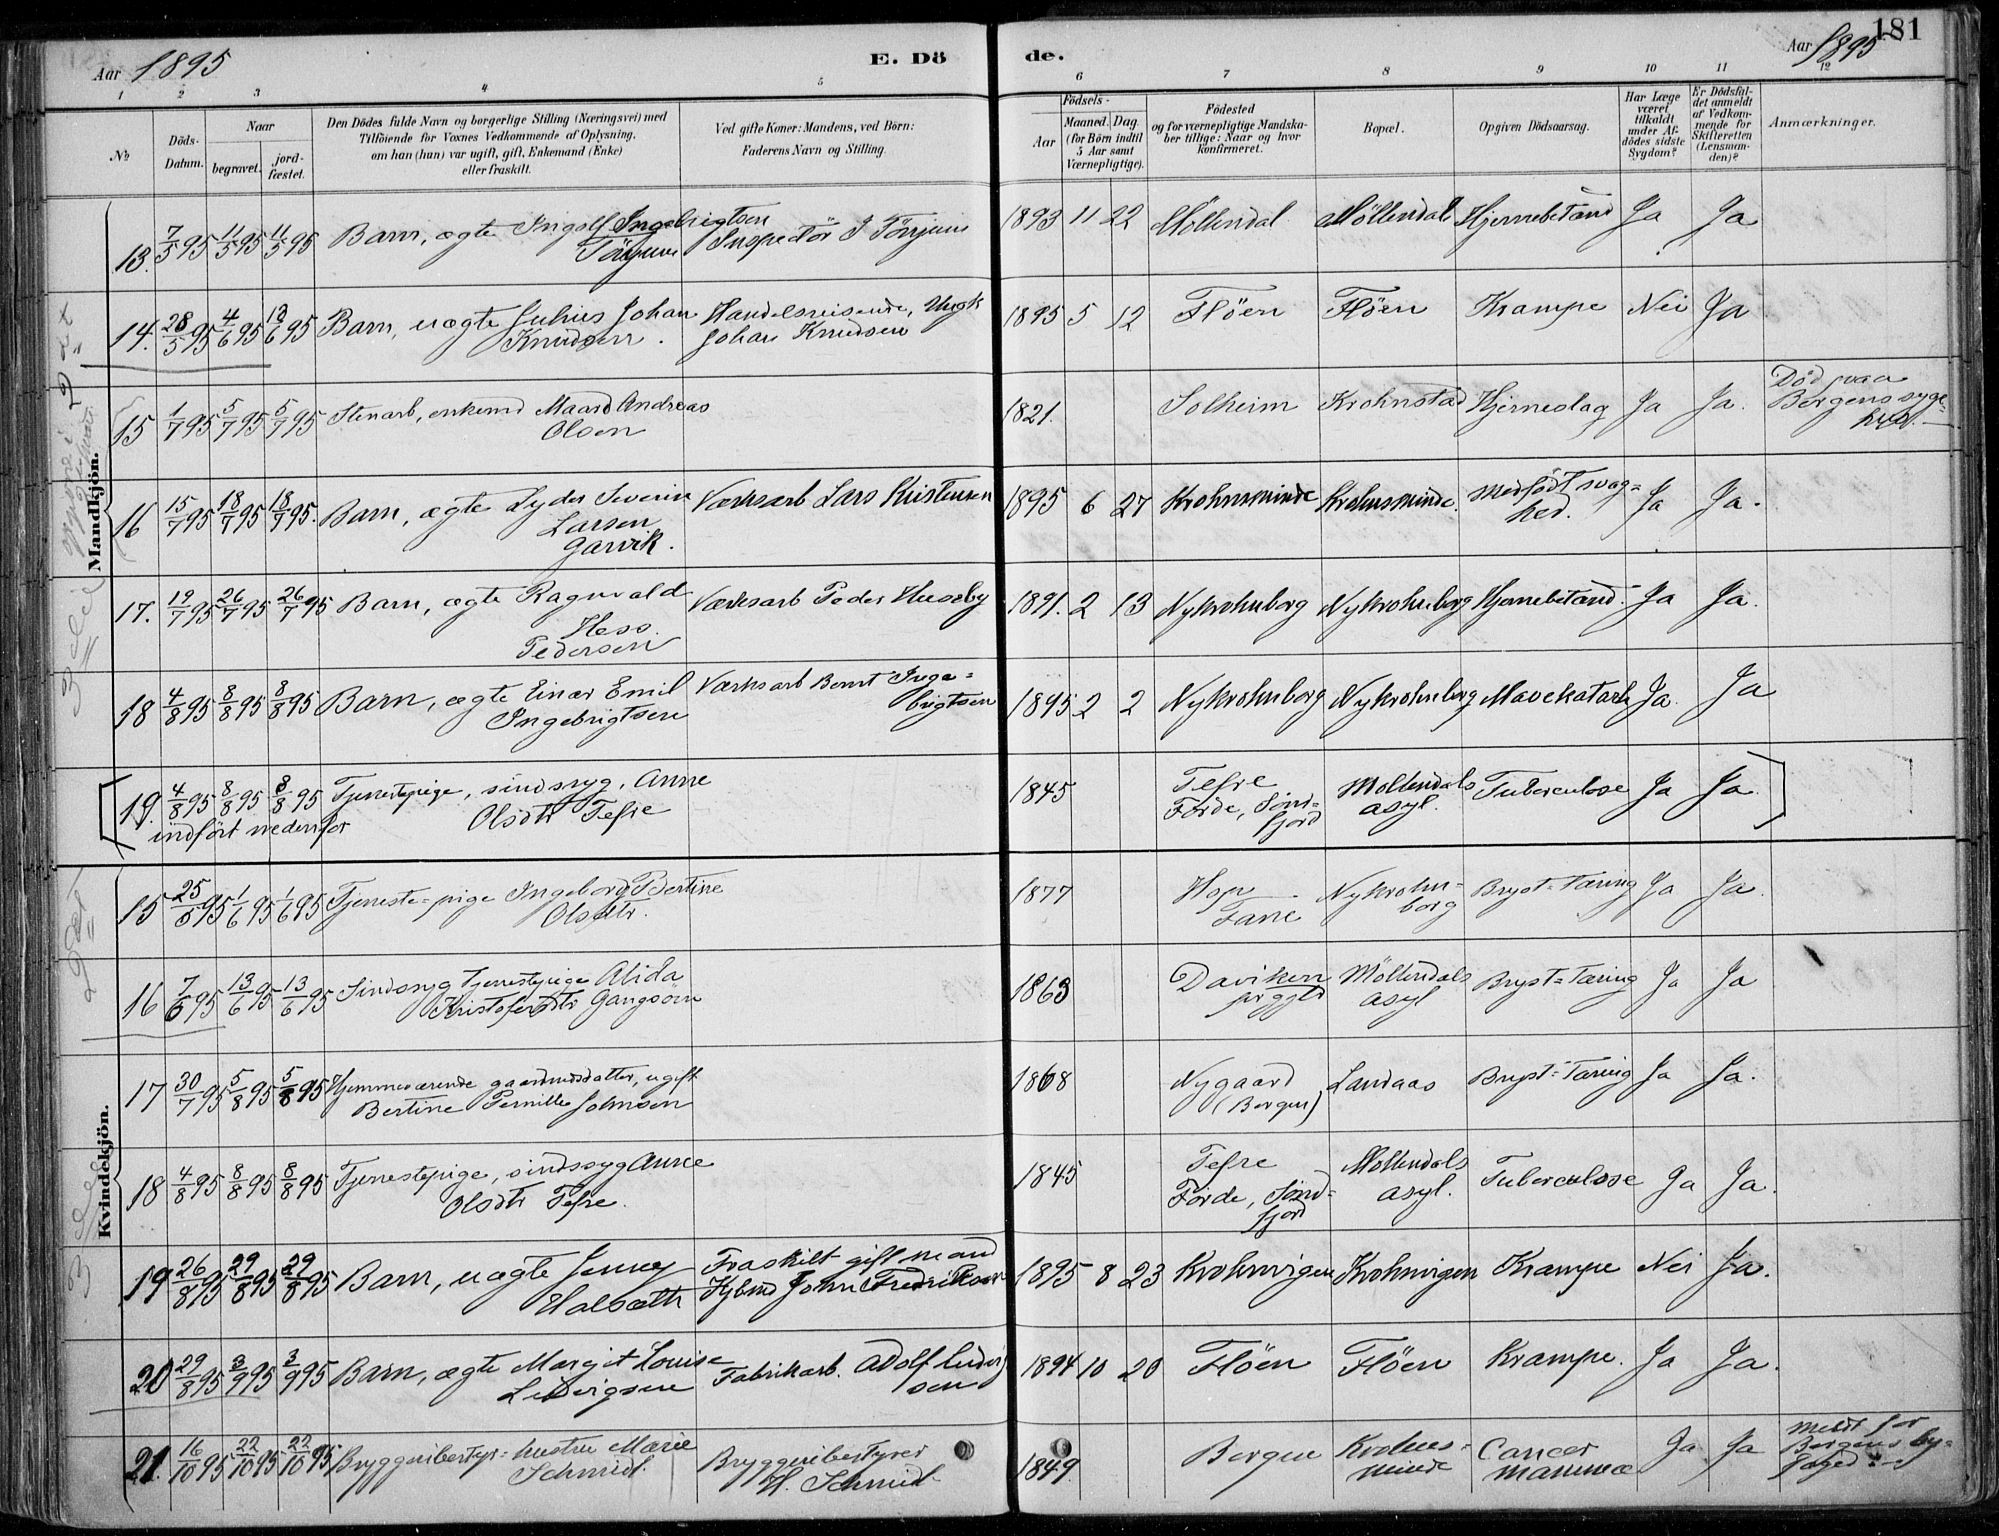 Aar 1895
E. Dö
de.
Aar 1895
181
1 2 3 4 5 6 7 8 9 10 11 12
No
Döds-Datum.
Naar
begravet.
jord-fæstet.
Den Dödes fulde Navn og borgerlige Stilling (Næringsvei) med
Tilföiende for Voxnes Vedkommende af Oplysning,
om han (hun) var ugift, gift, Enkemand (Enke)
eller fraskilt.
Ved gifte Koner: Mandens, ved Börn:
Faderens Navn og Stilling.
Födsels-
Aar
Maaned. Dag.
(for Börn indtil
5 Aar samt
Værnepligtige).
Födested
og for værnepligtige Mandska-
ber tillige: Naar og hvor
konfirmeret.
Bopæl.
Opgiven Dödsaarsag.
Har Læge
været
tilkaldt
under Af-
dödes sidste
Sygdom?
Er Dödsfal-
det anmeldt
af Vedkom-
mende for
Skifteretten
(Lensman-
den)?
Anmærkninger.
Mandkjön.
13. 7/5 95 11/5 95 11/5 95 Barn, ægte Ingolf Ingebrigtsen Törjum Inspektör I Törjum 1893 11 22 Möllendal Möllendal Hjernebetænd Ja Ja
14. 28/5 95 4/6 95 12/6 95 Barn, uægte Julius Johan Knudsen. Handelsreisende, Ungk Johan Knudsen 1895 5 12 Flöen Flöen Krampe Nei Ja
15 1/7 95 5/7 95 5/7 95 Stenarb, enkemd Maard Andreas Olsen 1821. Solheim Krohnstad Hjerneslag Ja Ja. Död paa Bergens syge-hus.
16 15/7 95 18/7 95 18/7 95. Barn, ægte Lyder Severin Larsen Garvik. Værksarb Lars Kristensen 1895 6 27 Krohnsminde Krohnsminde. Medfödt svag-hed. Ja Ja.
17. 19/7 95 26/7 95 26/7 95 Barn, ægte Ragnvald Hess. Pedersen Værksarb Peder Huseby 1891. 2 13 Nykrohnborg Nykrohnborg Hjernebetænd. Ja Ja.
18 4/8 95 8/8 95 8/8 95 Barn, ægte Einar Emil Ingebrigtsen Værksarb Bernt Inge-brigtsen 1895 2 2 Nykrohnborg Nykrohnborg Mavekatarh Ja. Ja
19. 4/8 95 8/8 95 8/8 95 Tjenestepige, sindssyg, Anne Olsdtr Tefre 1845 Tefre Förde, Sönd-fjord Möllendals asyl. Tuberculose Ja Ja.
indfört nedenfor
Kvindekjön.
15 25/5 95 1/6 95 1/6 95 Tjeneste-pige Ingeborg Bertine Olsdtr. 1877 Hop Fane Nykrohn-borg Bryst-Tæring Ja Ja.
16 7/6 95 13/6 95 13/6 95 Sindssyg tjenestepige Alida Kristofersdtr Gangsöen 1863 Daviken prggld Möllendals asyl Bryst-Tæring Ja Ja
17 30/7 95 5/8 95 5/8 95 Hjemmeværende gaardmdsdatter, ugift Bertine Pernille Johnsen 1868 Nygaard (Bergen) Landaas Bryst-Tæring Ja Ja.
18 4/8 95 8/8 95 8/8 95 Tjenestepige, sindssyg Anne Olsdtr Tefre. 1845 Tefre Förde, Sönd-fjord Möllendals asyl. Tuberculose Ja Ja.
19 26/8 95 29/8 95 29/8 95 Barn, uægte Jenny Halsæth Fraskilt gift mand Kjbmd John Fredriksen 1895 8 23 Krohnvigen Krohnvigen Krampe Nei Ja.
20 29/8 95 3/9 95 3/9 95 Barn, ægte Margit Louise Ludvigsen Fabrikarb. Adolf Ludvig sen 1894 10 20 Flöen Flöen Krampe. Ja Ja.
21. 16/10 95 22/10 95 22/10 95 Bryggeribestyr-hustru Marie Schmidt. Bryggeribestyrer H. Schmidt 1849. Bergen Krohns-minde Cancer mammæ Ja Ja Meldt for Bergens by-foged.